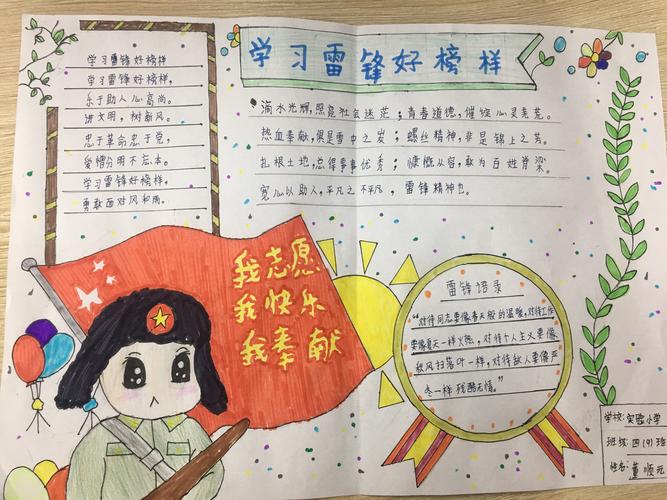 学习雷锋好榜样
学习雷锋好榜样
学习雷锋好榜样,
乐于助人心高尚。
讲文明,树新风。
忠于革命忠于党,
爱憎分明不忘本。
学习雷锋好榜样,
勇敢面对风和雨。
滴水光辉,照亮社会迷茫;青春道德,催绽心灵芜荒。
热血奉献,俱是雪中之炭;螺丝精神,非是锦上之花。
扎根土地,总得事事优秀;慷慨从容,敢为百姓脊梁。
宽心以助人,平凡之不平凡,雷锋精神也。
我志愿
我快乐
我奉献
雷锋语录
“对待同志要像春天般的温暖,对待工作
要像夏天一样火热,对待个人主义要像
秋风扫落叶一样,对待敌人要像严
冬一样残酷无情。”
学校:实验小学
班级:四(9)班
姓名:董顺元